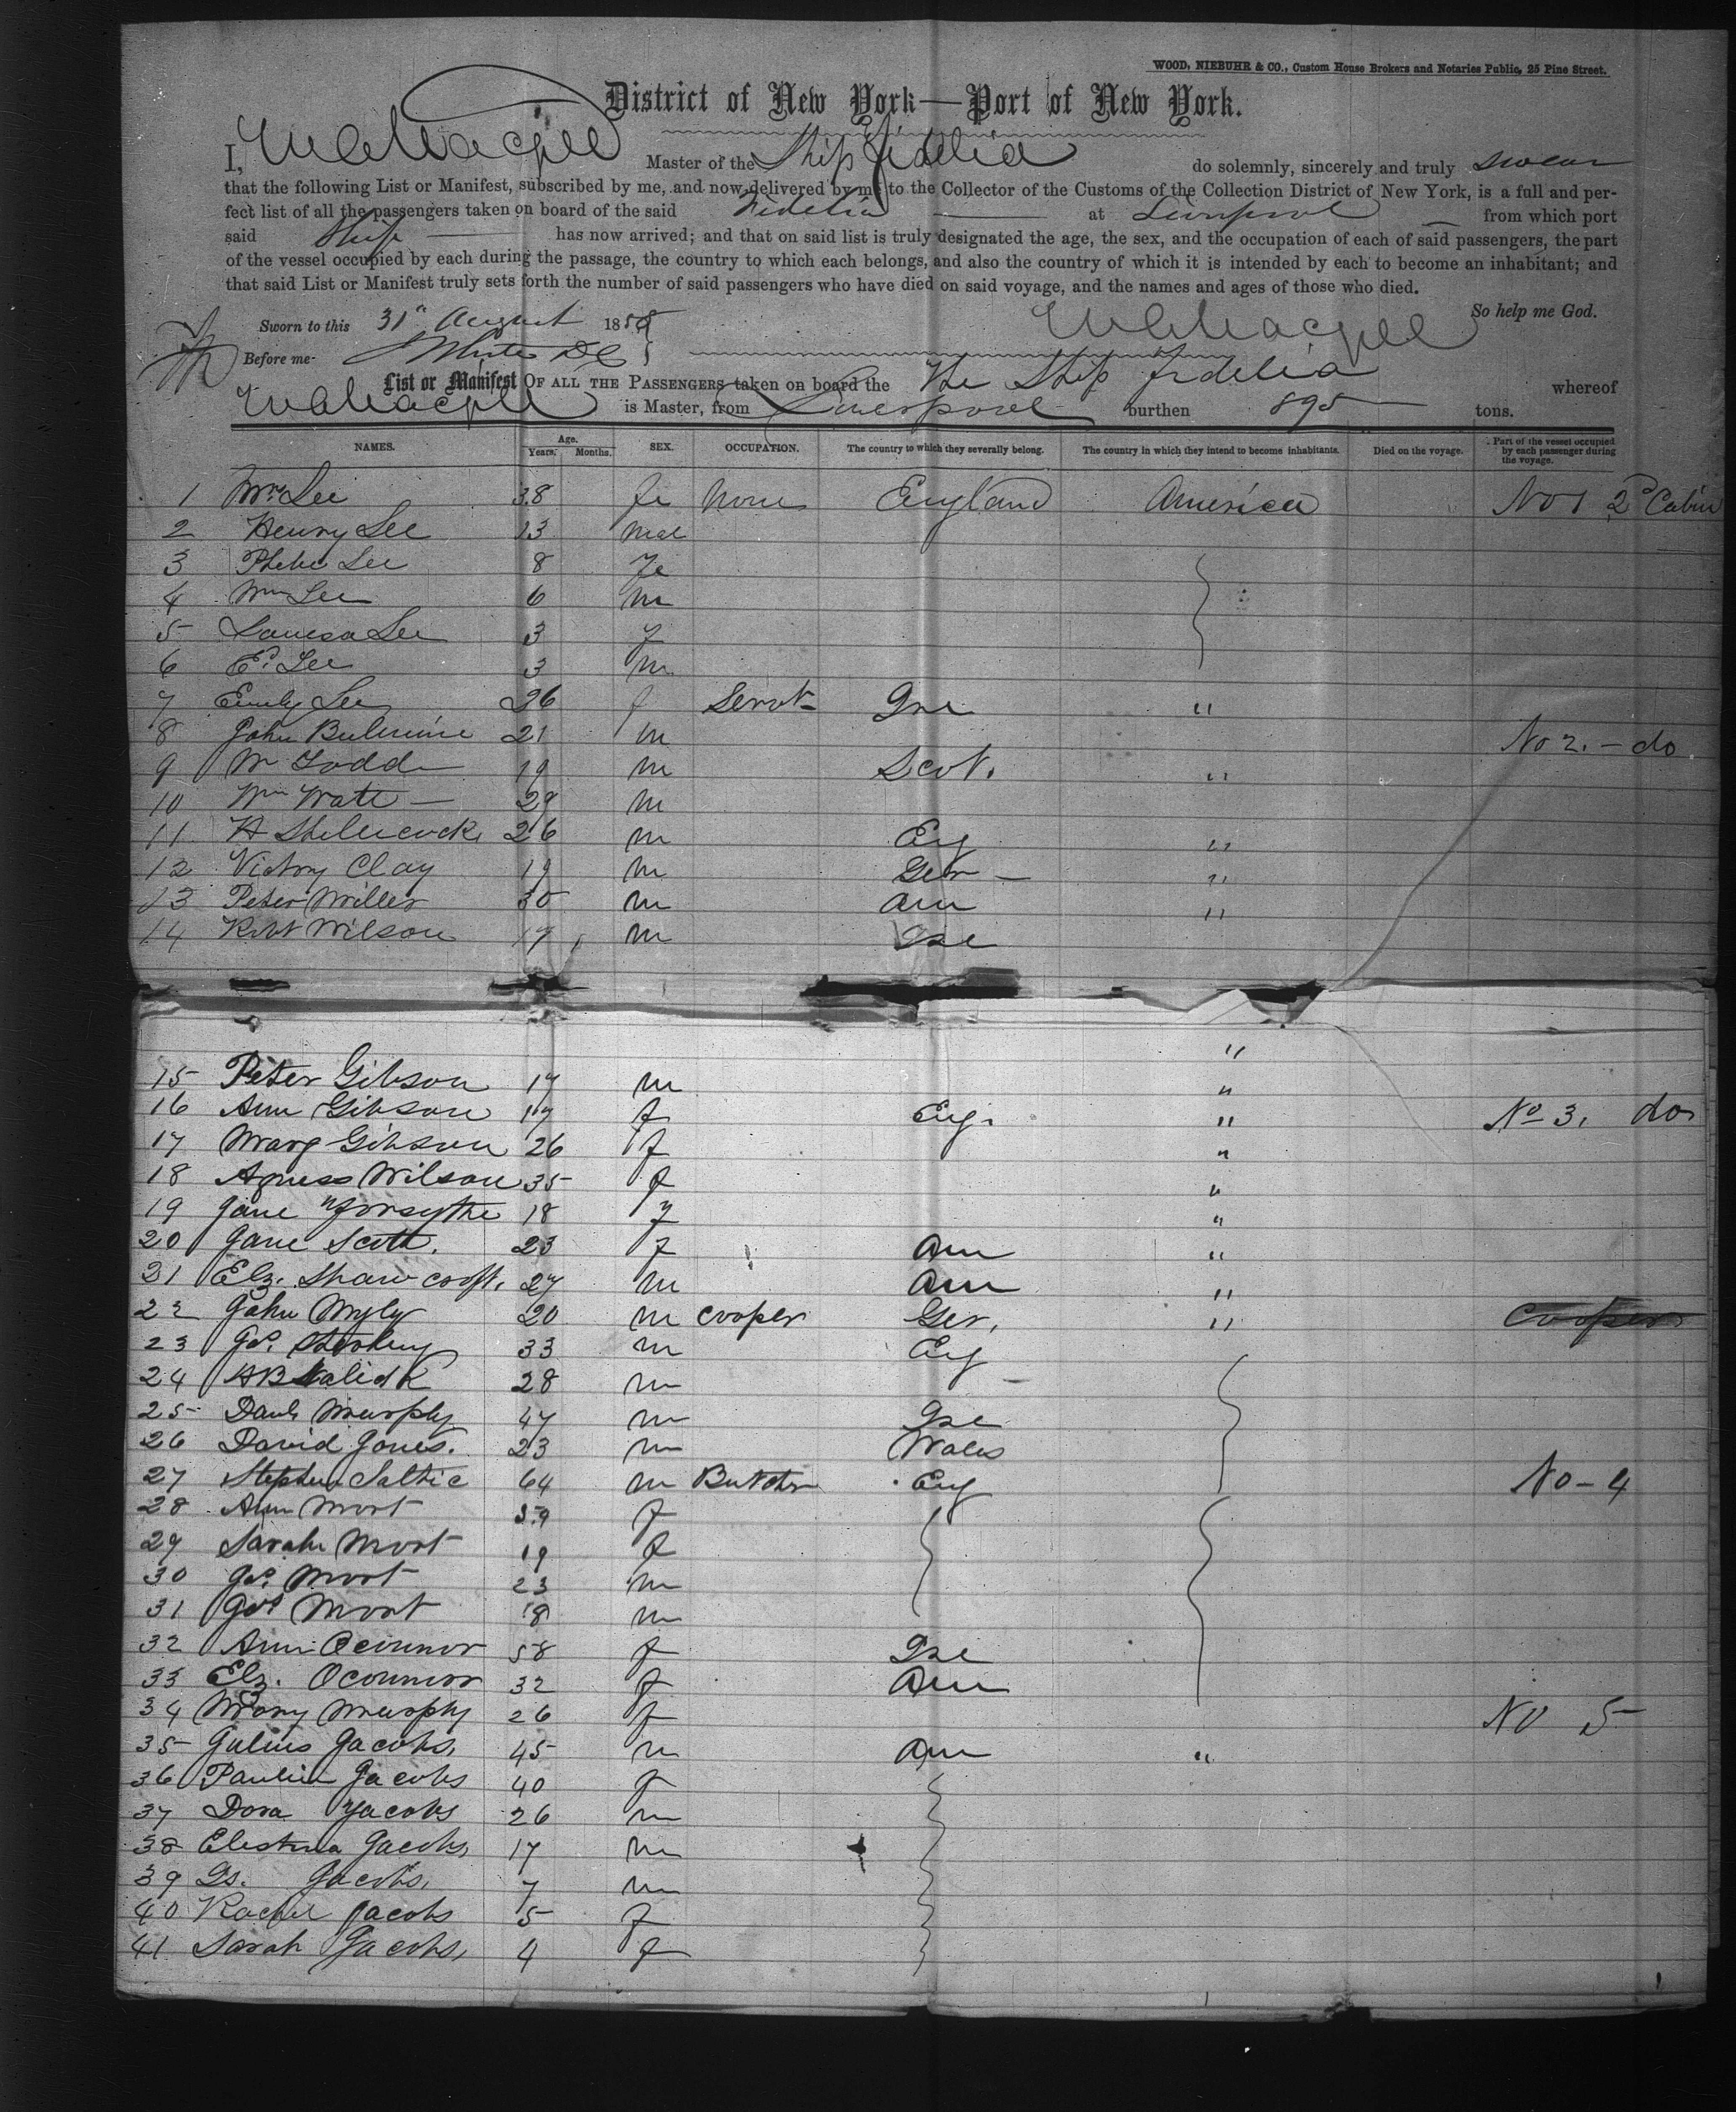 WOOD, NIEBUHR & CO., Custom House Brokers and Notaries Public, 25 Pine Street.
District of New York—Port of New York.
I, Master of the Ship Fidelia do solemnly, sincerely and truly swear
that the following List or Manifest, subscribed by me, and now delivered by me to the Collector of the Customs of the Collection District of New York, is a full and per-
fect list of all the passengers taken on board of the said Fidelia at Liverpool from which port
said Ship has now arrived; and that on said list is truly designated the age, the sex, and the occupation of each of said passengers, the part
of the vessel occupied by each during the passage, the country to which each belongs, and also the country of which it is intended by each to become an inhabitant; and
that said List or Manifest truly sets forth the number of said passengers who have died on said voyage, and the names and ages of those who died.
So help me God.
Sworn to this 31st August 185
Before me- White DC
List or Manifest OF ALL THE PASSENGERS taken on board the The Ship Fidelia whereof
is Master, from Liverpool burthen 895 tons.
NAMES. Age. Years. Months. SEX. OCCUPATION. The country to which they severally belong. The country in which they intend to become inhabitants. Died on the voyage. Part of the vessel occupied by each passenger during the voyage.
1 Mrs Lee 38 fe None England America No 1 2d Cabin
2 Henry Lee 13 mal
3 Phebe Lee 8 fe
4 Wm Lee 6 m
5 Louesa Lee 3 f
6 Ed. Lee 3 m
7 Emily Lee 26 f Servt Ire "
8 John Bulmine 21 m No 2. - do
9 M Todd 19 m Scot. "
10 Wm Watt 29 m
11 H Shillicock 26 m Eng "
12 Victory Clay 19 m Ger "
13 Peter Miller 30 m Am "
14 Robt Wilson 19 m Ire
"
15 Peter Gibson 17 m "
16 Ann Gibson 19 f Eng. " No 3. do
17 Marg Gibson 26 f "
18 Agness Wilson 35 f "
19 Jane Forsythe 18 f "
20 Jane Scott. 23 f Am "
21 Elz. Shawcroft. 27 m Am "
22 John Myly 20 m Cooper Ger. " Cooper
23 Geo. 33 m Eng
24 28 m
25 Danl Murphy 47 m Ire
26 David Jones. 23 m Wales
27 Stephen Saltic 64 m Butcher Eng No - 4
28 Ann Mort 59 f
29 Sarah Mort 19 f
30 Geo. Mort 23 m
31 Mort 18 m
32 Ann Oconnor 58 f Ire
33 Elz. Oconnor 32 f Am
34 Mary Murphy 26 f No 5
35 Julius Jacobs, 45 m Am "
36 Paulin Jacobs 40 f
37 Dora Jacobs 26 m
38 Elestina Jacobs, 17 m
39 Is. Jacobs, 7 m
40 Rachel Jacobs 5 f
41 Sarah Jacobs, 4 f